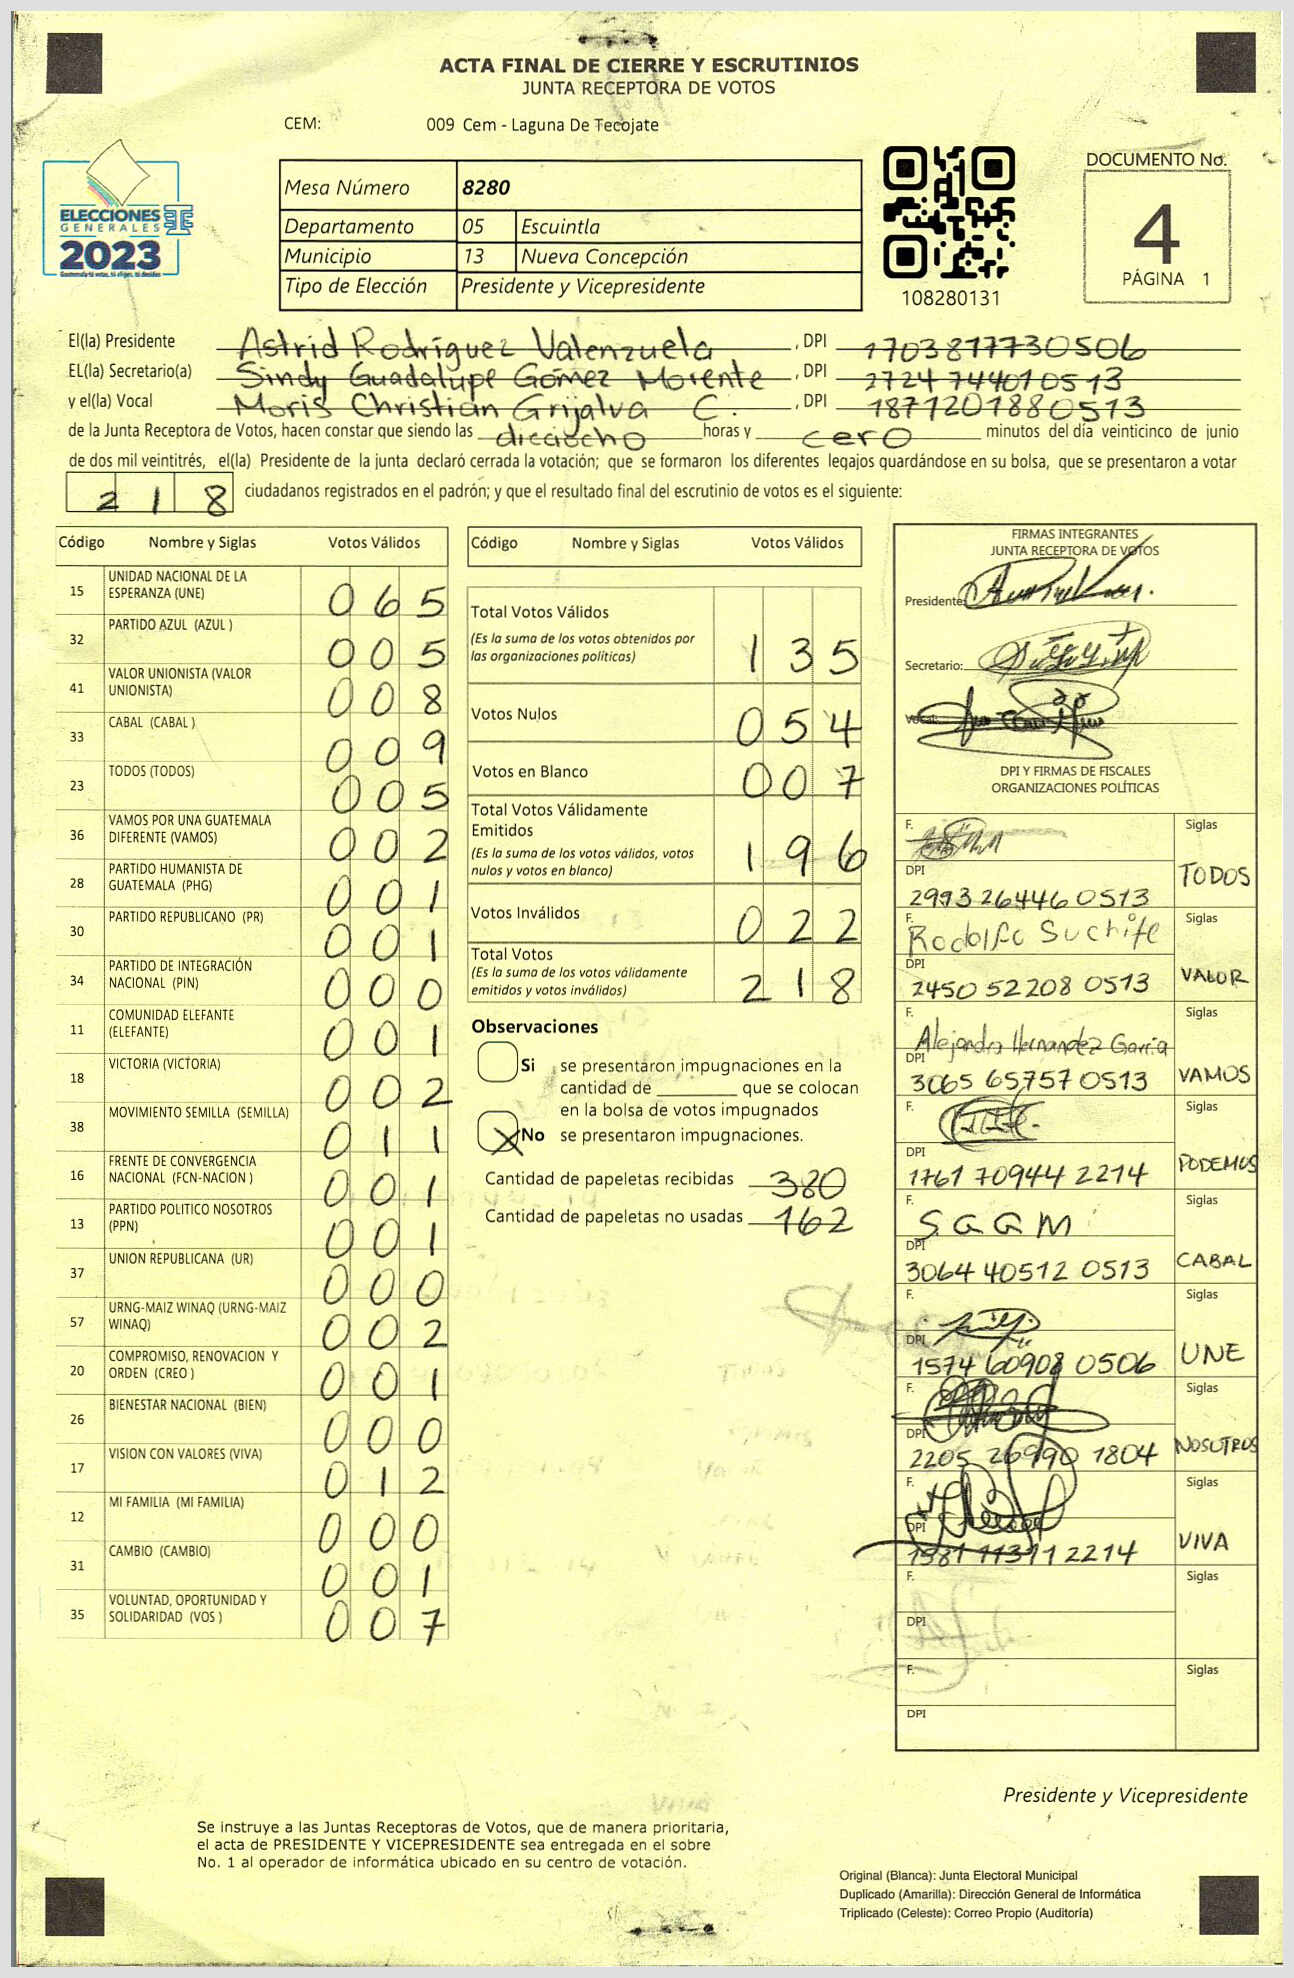 ACTA FINAL DE CIERRE Y ESCRUTINIOS
JUNTA RECEPTORA DE VOTOS
CEM: 009 Cem - Laguna De Tecojate
ELECCIONES
GENERALES
2023
Mesa Número 8280
Departamento 05 Escuintla
Municipio 13 Nueva Concepción
Tipo de Elección Presidente y Vicepresidente
108280131
DOCUMENTO No.
4
PÁGINA 1
El(la) Presidente Astrid Rodríguez Valenzuela, DPI 1703817730506
EL(la) Secretario(a) Sindy Guadalupe Gómez Morente, DPI 2724744010513
y el(la) Vocal Moris Christian Grijalva C., DPI 1871201880513
de la Junta Receptora de Votos, hacen constar que siendo las dieciocho horas y cero minutos del día veinticinco de junio
de dos mil veintitrés, el(la) Presidente de la junta declaró cerrada la votación; que se formaron los diferentes legajos quardándose en su bolsa, que se presentaron a votar
218 ciudadanos registrados en el padrón; y que el resultado final del escrutinio de votos es el siguiente:
Código Nombre y Siglas Votos Válidos
15 UNIDAD NACIONAL DE LA ESPERANZA (UNE) 065
32 PARTIDO AZUL (AZUL ) 005
41 VALOR UNIONISTA (VALOR UNIONISTA) 008
33 CABAL (CABAL ) 009
23 TODOS (TODOS) 005
36 VAMOS POR UNA GUATEMALA DIFERENTE (VAMOS) 002
28 PARTIDO HUMANISTA DE GUATEMALA (PHG) 001
30 PARTIDO REPUBLICANO (PR) 001
34 PARTIDO DE INTEGRACIÓN NACIONAL (PIN) 000
11 COMUNIDAD ELEFANTE (ELEFANTE) 001
18 VICTORIA (VICTORIA) 002
38 MOVIMIENTO SEMILLA (SEMILLA) 011
16 FRENTE DE CONVERGENCIA NACIONAL (FCN-NACION ) 001
13 PARTIDO POLITICO NOSOTROS (PPN) 001
37 UNION REPUBLICANA (UR) 000
57 URNG-MAIZ WINAQ (URNG-MAIZ WINAQ) 002
20 COMPROMISO, RENOVACION Y ORDEN (CREO ) 001
26 BIENESTAR NACIONAL (BIEN) 000
17 VISION CON VALORES (VIVA) 012
12 MI FAMILIA (MI FAMILIA) 000
31 CAMBIO (CAMBIO) 001
35 VOLUNTAD, OPORTUNIDAD Y SOLIDARIDAD (VOS ) 007
Código Nombre y Siglas Votos Válidos
Total Votos Válidos 135
(Es la suma de los votos obtenidos por
las organizaciones políticas)
Votos Nulos 054
Votos en Blanco 007
Total Votos Válidamente
Emitidos 196
(Es la suma de los votos válidos, votos
nulos y votos en blanco)
Votos Inválidos 022
Total Votos 218
(Es la suma de los votos válidamente
emitidos y votos inválidos)
Observaciones
Si se presentaron impugnaciones en la
cantidad de ________ que se colocan
en la bolsa de votos impugnados
X No se presentaron impugnaciones.
Cantidad de papeletas recibidas 380
Cantidad de papeletas no usadas 162
FIRMAS INTEGRANTES
JUNTA RECEPTORA DE VOTOS
Presidente:
Secretario:
Vocal:
DPI Y FIRMAS DE FISCALES
ORGANIZACIONES POLÍTICAS
F. Siglas
DPI TODOS
2993 26446 0513
F. Rodolfo Suchite Siglas
DPI VALOR
2450 52208 0513
F. Alejandra Hernandez García Siglas
DPI VAMOS
3065 65757 0513
F. Siglas
DPI PODEMOS
1761 70944 2214
F. SGGM Siglas
DPI CABAL
3064 40512 0513
F. Siglas
DPI UNE
1574 60908 0506
F. Siglas
DPI NOSOTROS
2205 26990 1804
F. Siglas
DPI VIVA
1581 11311 2214
F. Siglas
DPI
F. Siglas
DPI
Presidente y Vicepresidente
Se instruye a las Juntas Receptoras de Votos, que de manera prioritaria,
el acta de PRESIDENTE Y VICEPRESIDENTE sea entregada en el sobre
No. 1 al operador de informática ubicado en su centro de votación.
Original (Blanca): Junta Electoral Municipal
Duplicado (Amarilla): Dirección General de Informática
Triplicado (Celeste): Correo Propio (Auditoría)